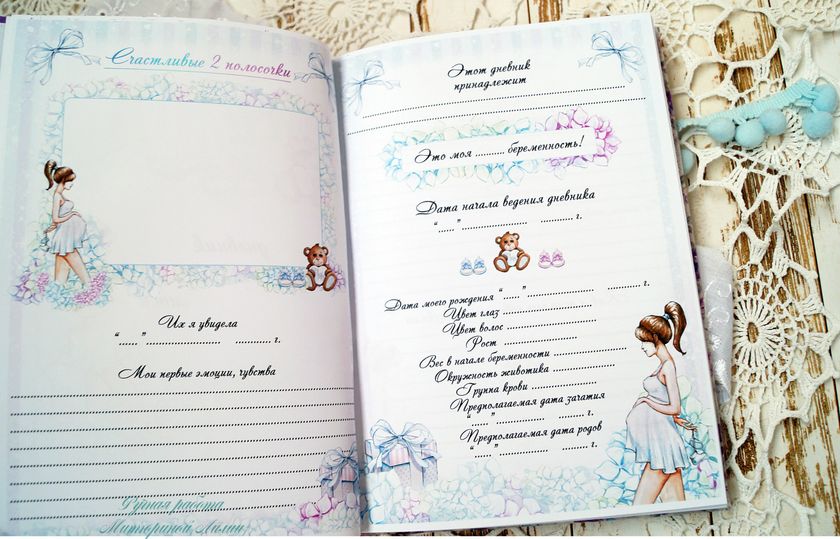 Счастливые 2 полосочки
Их я увидела
"......" ........................ ............ г.
Мои первые эмоции, чувства
Ручная работа
Митториной Лилии
Этот дневник
принадлежит
Это моя .......... беременность!
Дата начала ведения дневника
"......" ...................... ........... г.
Дата моего рождения "......" ...................... ........... г.
Цвет глаз ..............................
Цвет волос ..............................
Рост ..............................
Вес в начале беременности ........................
Окружность животика ........................
Группа крови ....................
Предполагаемая дата зачатия
"......" .................... ......... г.
Предполагаемая дата родов
"......" .................... ......... г.